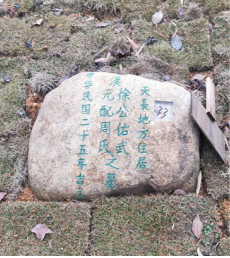 天長地方住居
徐公佑武
元配周氏之墓
民國二十五年吉